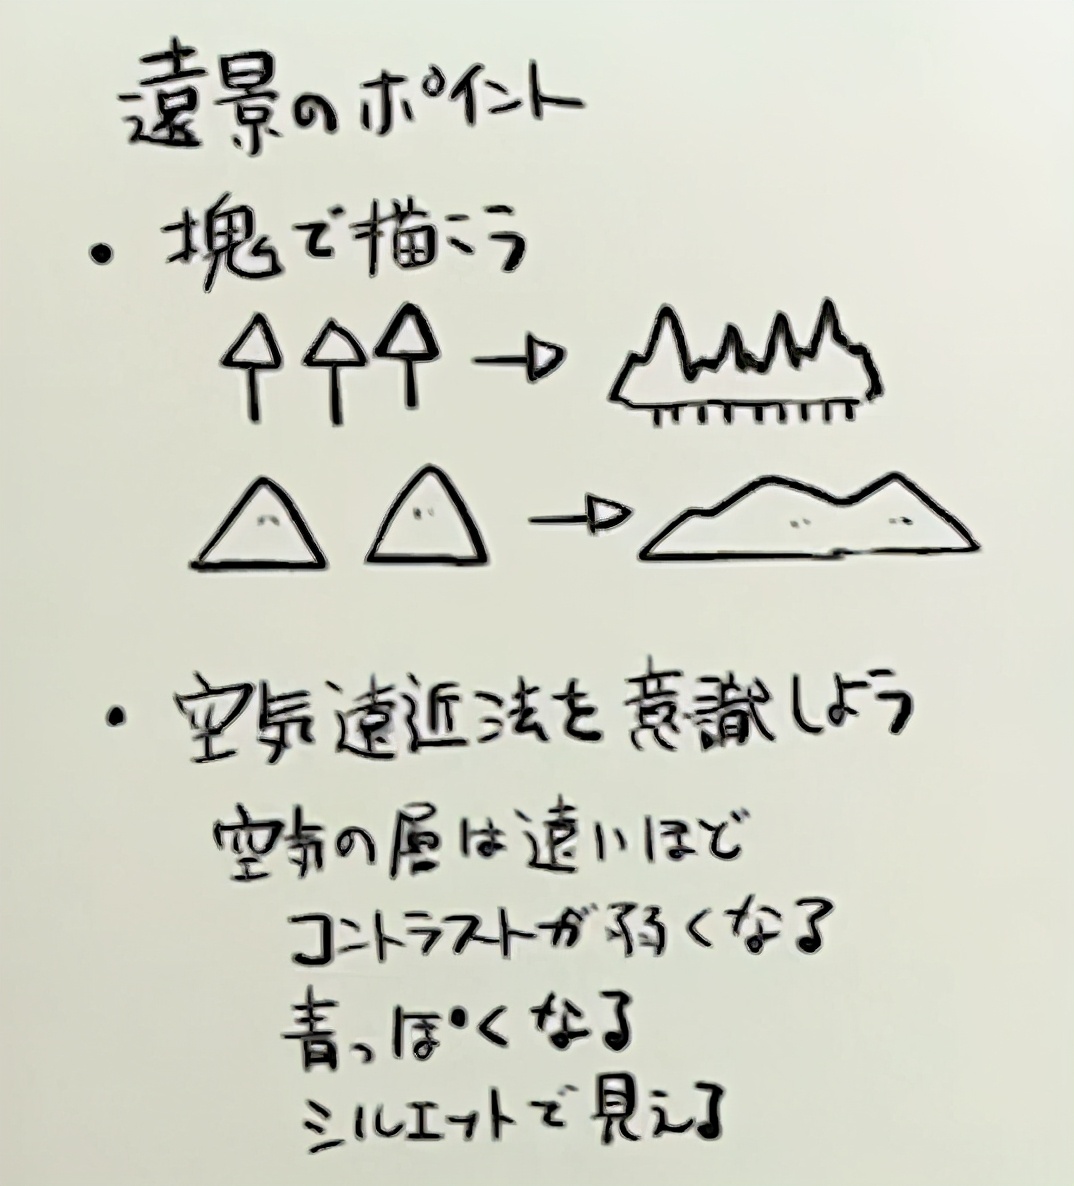 遠景のポイント
・塊で描こう
・空気遠近法を意識しよう
空気の層は遠いほど
コントラストが弱くなる
青っぽくなる
シルエットで見える